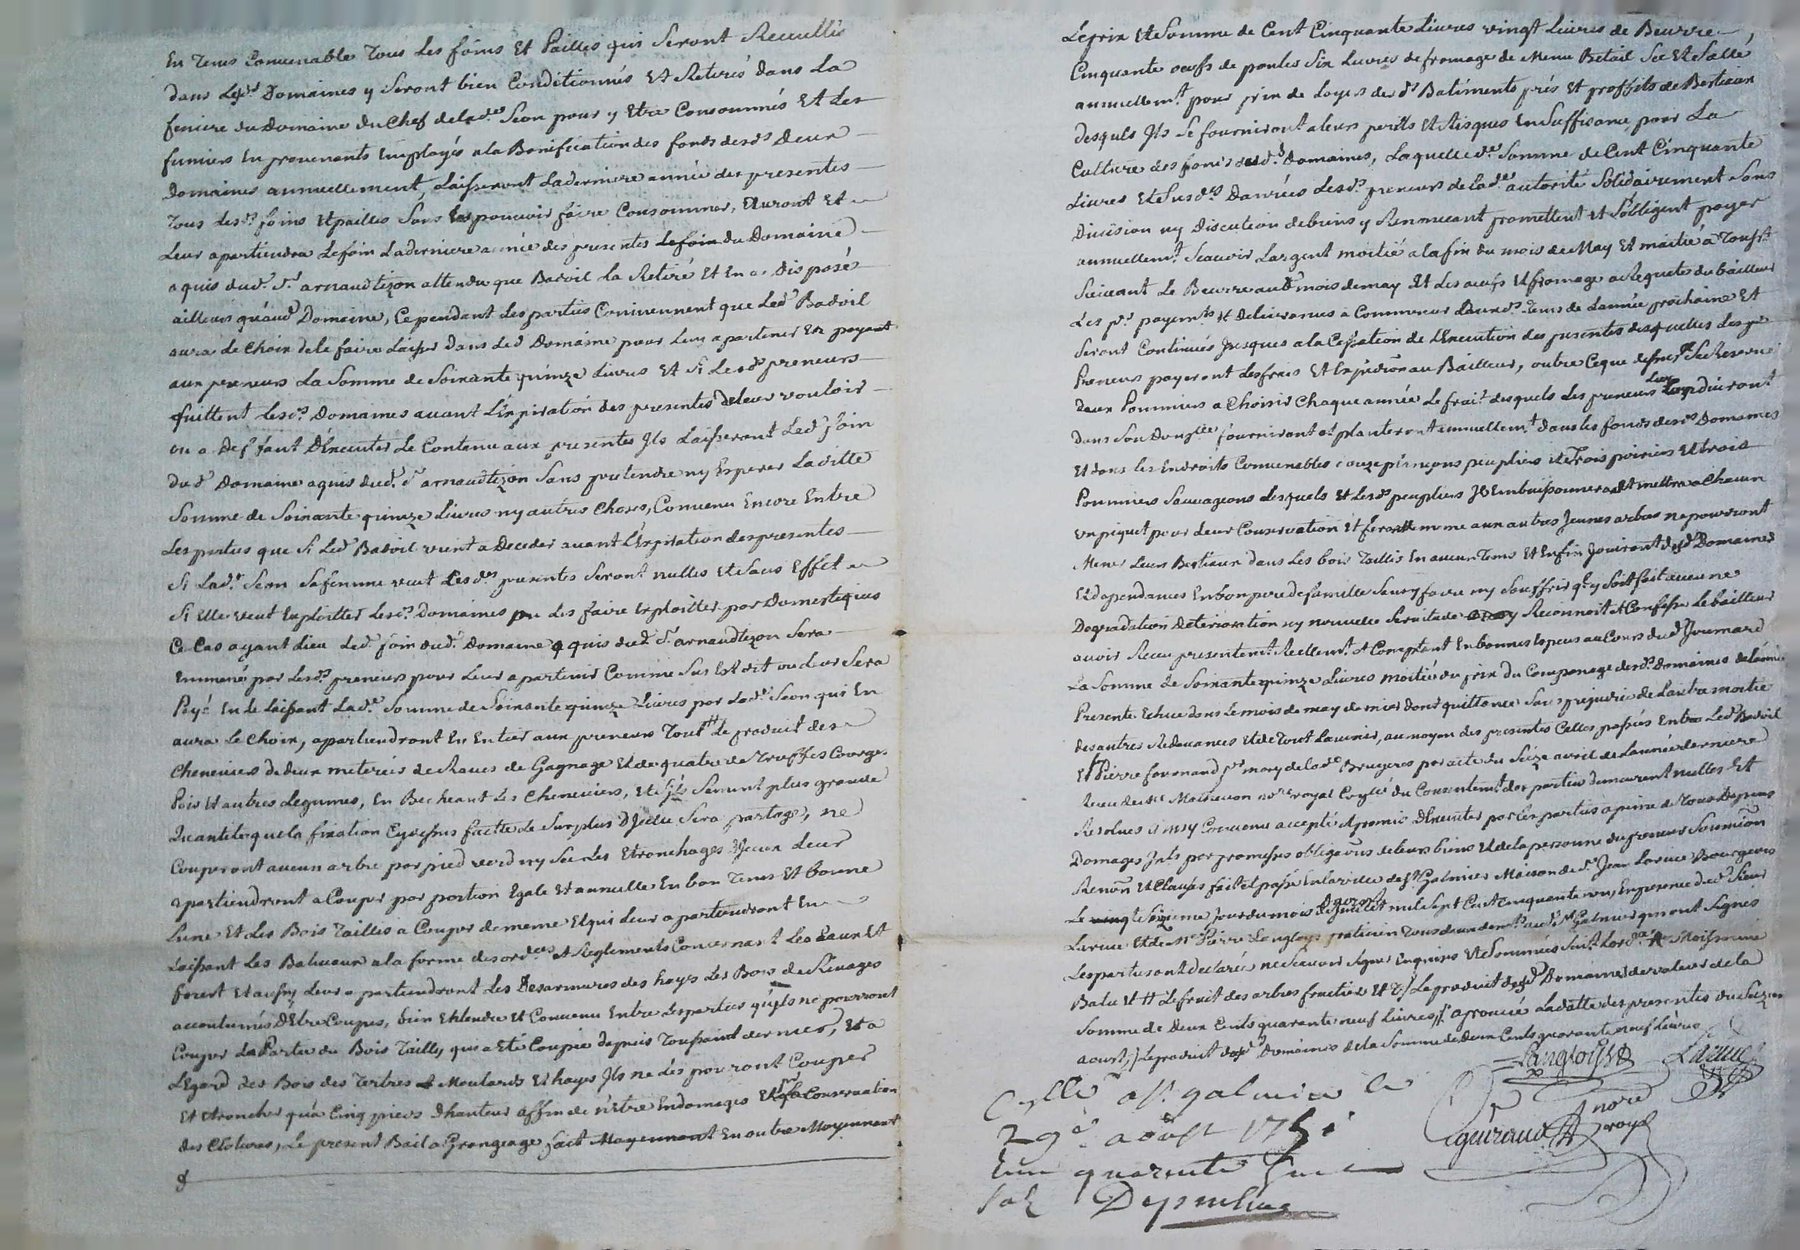 En tems Convenable Tous Les foins Et Pailles qui Seront Recueillis
dans Lesd. Domaines y Seront bien Conditionnés Et Retirés dans La
feniere du Domaine du Chef de lad.e Seon pour y Etre Consommés Et Les
fumiers En provenants Employés a la Bonification des fonds desd.s Deux
Domaines annuellement, Laisseront La derniere année des presentes
Tous lesd.s foins Et pailles Sans Les pouvoir faire Consommer, Auront Et
Leur apartiendra Le foin La derniere année des presentes du Domaine
aquis dud. S.r arnaudtizon attendu que Badoil la Retiré Et En a disposé
ailleurs qu'aud. Domaine, Cependant Les parties Conviennent que Led. Badoil
aura Le Choix de le faire Laisser dans Led. Domaine pour Luy apartenir En payant
aux preneurs La Somme de Soixante quinze Livres Et Si Lesd. preneurs
quittent Lesd.s Domaines avant L'Expiration des presentes de leur vouloir
ou a Deffaut D'Executer Le Contenu aux presentes Ils Laisseront Led. foin
dud. Domaine aquis dud. S.r arnaudtizon Sans pretendre ny Esperer Ladite
Somme de Soixante quinze Livres ny autres Choses, Convenu Encore Entre
Les parties que Si Led. Badoil vient a Deceder avant L'Expiration des presentes
Si Lad.e Seon Sa femme veut Lesd.es presentes Seront nulles Et Sans Effet
Si Elle veut Exploitter Lesd.s Domaines ou Les faire Exploitter par Domestiques
Ce Cas ayant Lieu Led. foin dud. Domaine aquis dud. S.r arnaudtizon Sera
Emmené par Lesd.s preneurs pour Leur apartenir Comme Sus Est dit ou Leur Sera
Payé En Le Laissant Lad.e Somme de Soixante quinze Livres par Lad.e Seon qui En
aura Le Choix, apartiendront En Entier aux preneurs Tout Le produit des
Chenevieres de deux meterées de Raves de Gagnage Et de quatre de Truffes Courges
Pois Et autres Legumes, En Becheant Les Chenevieres, Et S'ils Sement plus grande
Quantité que la fixation Cydessus faitte Le Surplus D'Icelle Sera partagé, ne
Couperont aucun arbre par pied verd ny Sec Les Etronchages D'Iceux Leur
apartiendront a Couper par portion Egale Et annuelle En bon Tems Et bonne
Lune Et Les Bois Taillis a Couper de meme Et qui Leur apartiendront En
Laissant Les Baliveaux a la forme des ord.ces Et Reglements Concernant Les Eaux Et
forest Et aussy Leur apartiendront Les Desarmures des hayes Les Bois de Rivages
accoutumés D'Etre Coupés, bien Entendu Et Convenu Entre Les parties qu'ils ne pourront
Couper La Partie du Bois Tailly qui a Eté Coupée depuis Toussaint dernier, Et a
L'Egard des Bois des Tertres Et Moulards Et hayes Ils ne Les pourront Couper
Et Etroncher qu'a Cinq pieds D'hauteur affin de n'Etre Endomagés Et p.r La Conservation
des Clotures, Le present Bail a Grangeage fait Moyennant En outre Moyennant
Le prix Et Somme de Cent Cinquante Livres vingt Livres de Beurre,
Cinquante oeufs de poules Six Livres de fromage de Menu Betail Sec Et Salé
annuellem.t pour prix de Loyer desd.s Batiments prés Et proffits de Bestiaux
desquels Ils Se fourniront a leurs perils Et Risques En Suffisance pour La
Culture des fonds desd.s Domaines, Laquelle d.e Somme de Cent Cinquante
Livres Et Susd.es Danrées Lesd.s preneurs de Lad.e autorité Solidairement Sans
Division ny Discution de biens y Renonceant promettent Et S'obligent payer
annuellem.t Scavoir L'argent moitié a la fin du mois de May Et moitié a Touss.t
Suivant Le Beurre aud. mois de may Et Les oeufs Et fromage a Requete du bailleur
Les p.rs payem.ts Et Delivrances a Commencer Dansd. Tems de L'année prochaine Et
Seront Continués Jusques a la Cessation de L'Execution des presentes desquelles Les p.rs
Preneurs payeront Les frais Et Expedition au Bailleur, outre Ce que dessus Se Reserve
Deux Pommiers a Choisir Chaque année Le fruit desquels Les preneurs Luy Conduiront
dans Son Domicile fourniront Et planteront annuellem.t dans les fonds desd.s Domaines
Et dans Les Endroits Convenables plançons peupliers Et Trois poiriers Et trois
Pommiers Sauvageons Lesquels Et Lesd.s peupliers Ils Embuissonneront Et mettra a Chacun
un piquet pour Leur Conservation Et feront meme aux autres Jeunes arbres ne pourront
Mener Leurs Bestiaux dans Les bois Taillis En aucun Tems Et Enfin Jouiront desd.s Domaines
Et dependances En bon pere de famille Sans y faire ny Souffrir q.l y Soit fait aucune
Degradation Deterioration ny nouvelle Servitude Reconnoit Et Confesse Le bailleur
avoir Receu presentem.t Reellem.t Et Comptant En bonnes Especes au Cours dud. Joumard
La Somme de Soixante quinze Livres moitié du prix du desd.s Domaines de L'année
Presente Echue dans Le mois de may dernier dont quittance Sans prejudice de L'autre moitié
des autres Redevances Et de Tout L'avenir, au moyen des presentes Celles passées Entre Led. Badoil
Et Pierre fornand p.r mary de Lad.e Bruyeres par acte du Seize avril de L'année derniere
Receu de M.e Mathevon no.re Royal du Consentem.t des parties demeurent nulles Et
Resolues ainsy Convenu accepté Et promis D'Executer par Les parties a peine de Tous Depens
Domages Ints par promesses obligaons de leurs biens Et de la personne du preneur Soumion
Renon Et Clauses fait Et passé En la ville de S.t Galmier Maison de S.r Jean Larue Bourgeois
Le Seizieme Jour du mois D'aoust mil Sept Cent Cinquante un, En presence dud. Sieur
Larue Et de M.e Pierre Langloys praticien Tous deux dem.t aud. S.t Galmier qui ont Signés
Les parties ont declarés ne Scavoir Signer Enquises Et Sommées Suiv.t Lord.ce Moissonne
Batu Et Le fruit des arbres fruitiers Et Le produit desd.s Domaines de valeur de la
Somme de Deux Cents quarante neuf Livres aprouvé La datte des presentes du Seize
aoust, Le produit desd.s Domaines de la Somme de deux Cents quarante neuf Livres
Langloys Larue
Guiraud no.re royal
Cyllé a S.t galmier le
29.e aoust 1751
quarente
sols